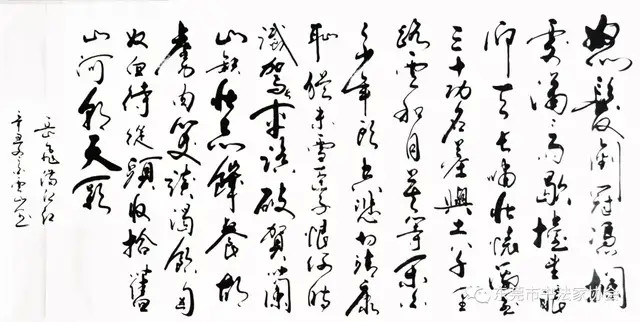 怒髮衝冠憑欄
處瀟瀟雨歇抬望眼
仰天長嘯壯懷激烈
三十功名塵與土八千里
路雲和月莫等閒白了
少年頭空悲切靖康
恥猶未雪臣子恨何時
滅駕長車踏破賀蘭
山缺壯志饑餐胡
虜肉笑談渴飲匈
奴血待從頭收拾舊
山河朝天闕
岳飛滿江紅
辛丑
东莞市书法家协会